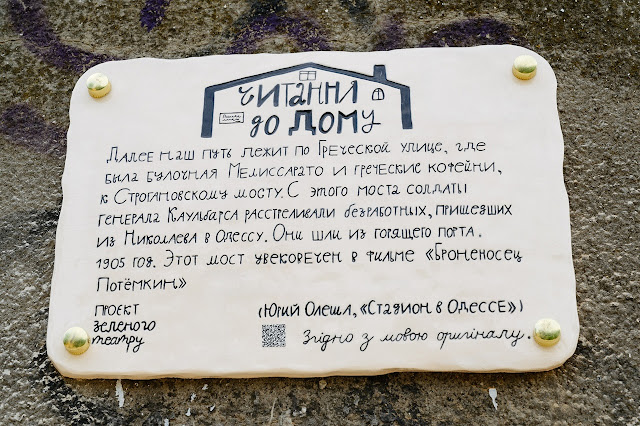 читання
до дому
Далее наш путь лежит по Греческой улице, где
была булочная Мелиссарато и греческие кофейни,
к Строгановскому мосту. С этого моста солдаты
генерала Каульбарса расстреливали безработных, пришедших
из Николаева в Одессу. Они шли из горящего порта.
1905 год. Этот мост увековечен в фильме «Броненосец
Потёмкин»
проєкт
Зеленого
театру
(Юрий Олеша, «Стадион в Одессе»)
Згідно з мовою оригіналу.